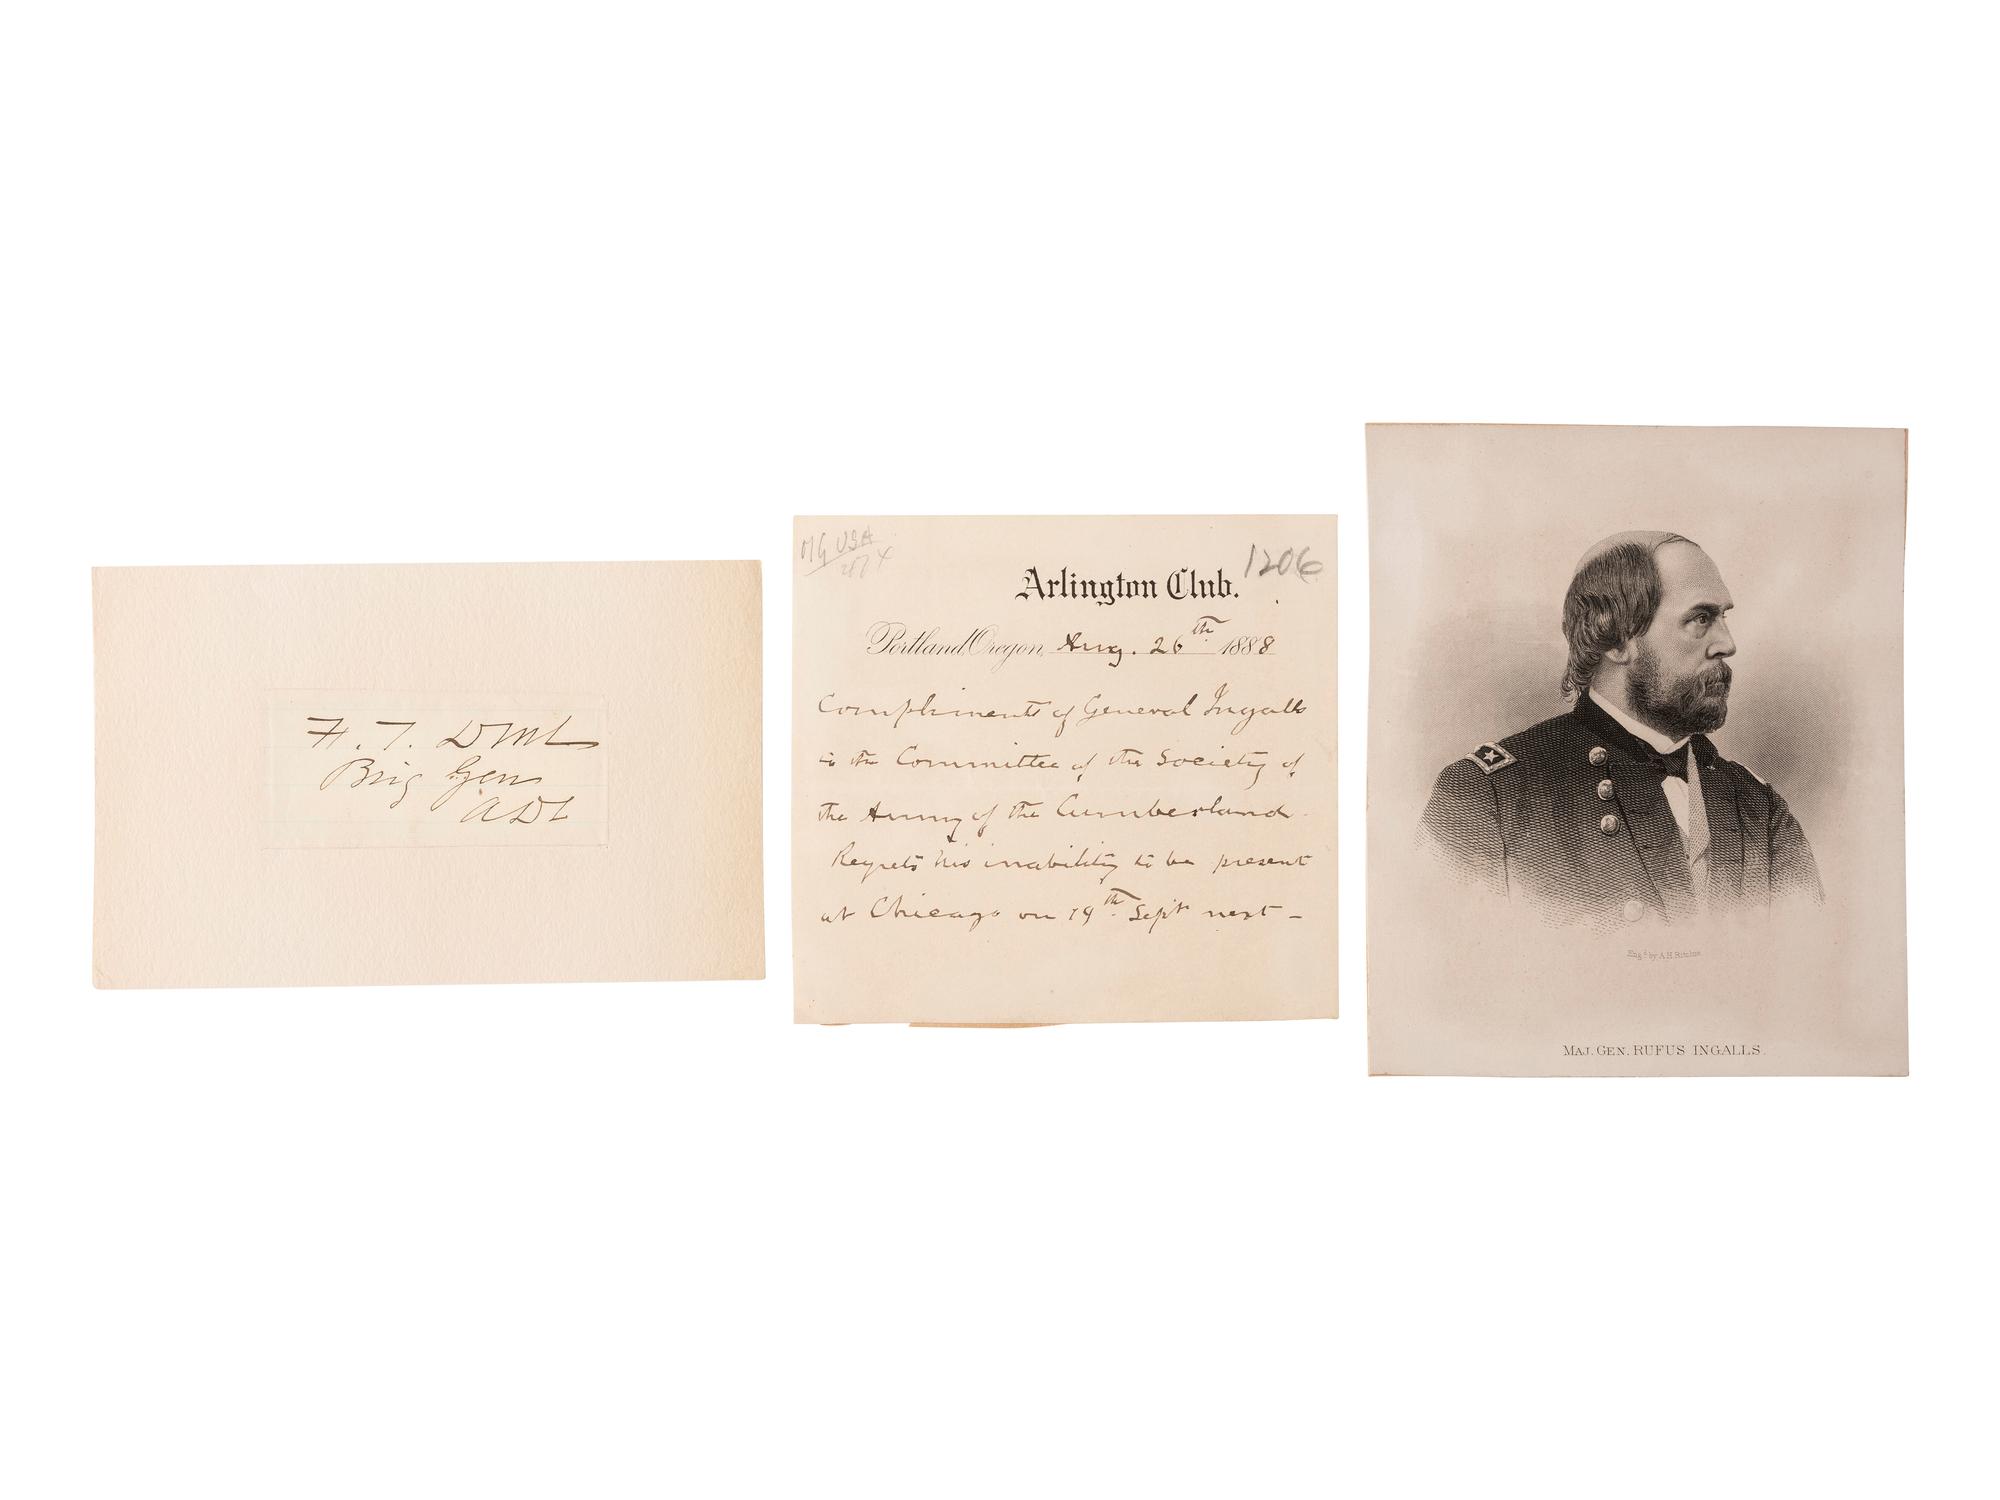 F. T. Dent
Brig Gen
ADC
MG USA
1206
Arlington Club.
Portland, Oregon, Aug. 26th 1888
Compliments of General Ingalls
to the Committee of the Society of
the Army of the Cumberland.
Regrets his inability to be present
at Chicago on 19th Sept next –
Engd by A.H. Ritchie
MAJ. GEN. RUFUS INGALLS.